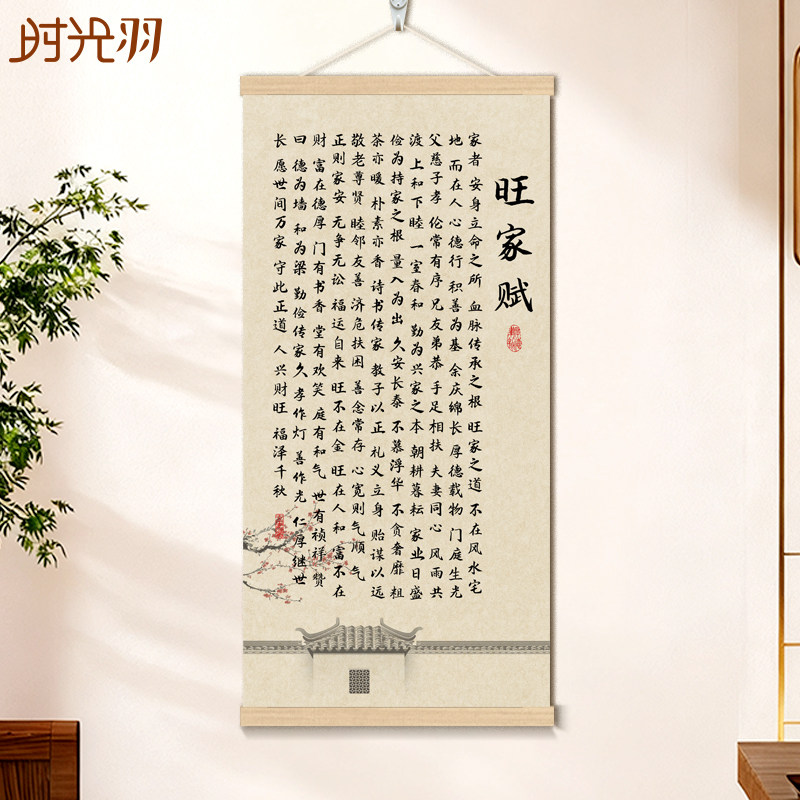 时光羽
旺家赋
家者 安身立命之所 血脉传承之根 旺家之道 不在风水宅
地 而在人心德行 积善为基 余庆绵长 厚德载物 门庭生光
父慈子孝 伦常有序 兄友弟恭 手足相扶 夫妻同心 风雨共
渡 上和下睦 一室春和 勤为兴家之本 朝耕暮耘 家业日盛
俭为持家之根 量入为出 久安长泰 不慕浮华 不贪奢靡 粗
茶亦暖 朴素亦香 诗书传家 教子以正 礼义立身 贻谋以远
敬老尊贤 睦邻友善 济危扶困 善念常存 心宽则气顺 气
正则家安 无争无讼 福运自来 旺不在金 旺在人和 富不在
财 富在德厚 门有书香 堂有欢笑 庭有和气 世有祯祥 赞
曰 德为墙 和为梁 勤俭传家久 孝作灯 善作光 仁厚继世
长 愿世间万家 守此正道 人兴财旺 福泽千秋